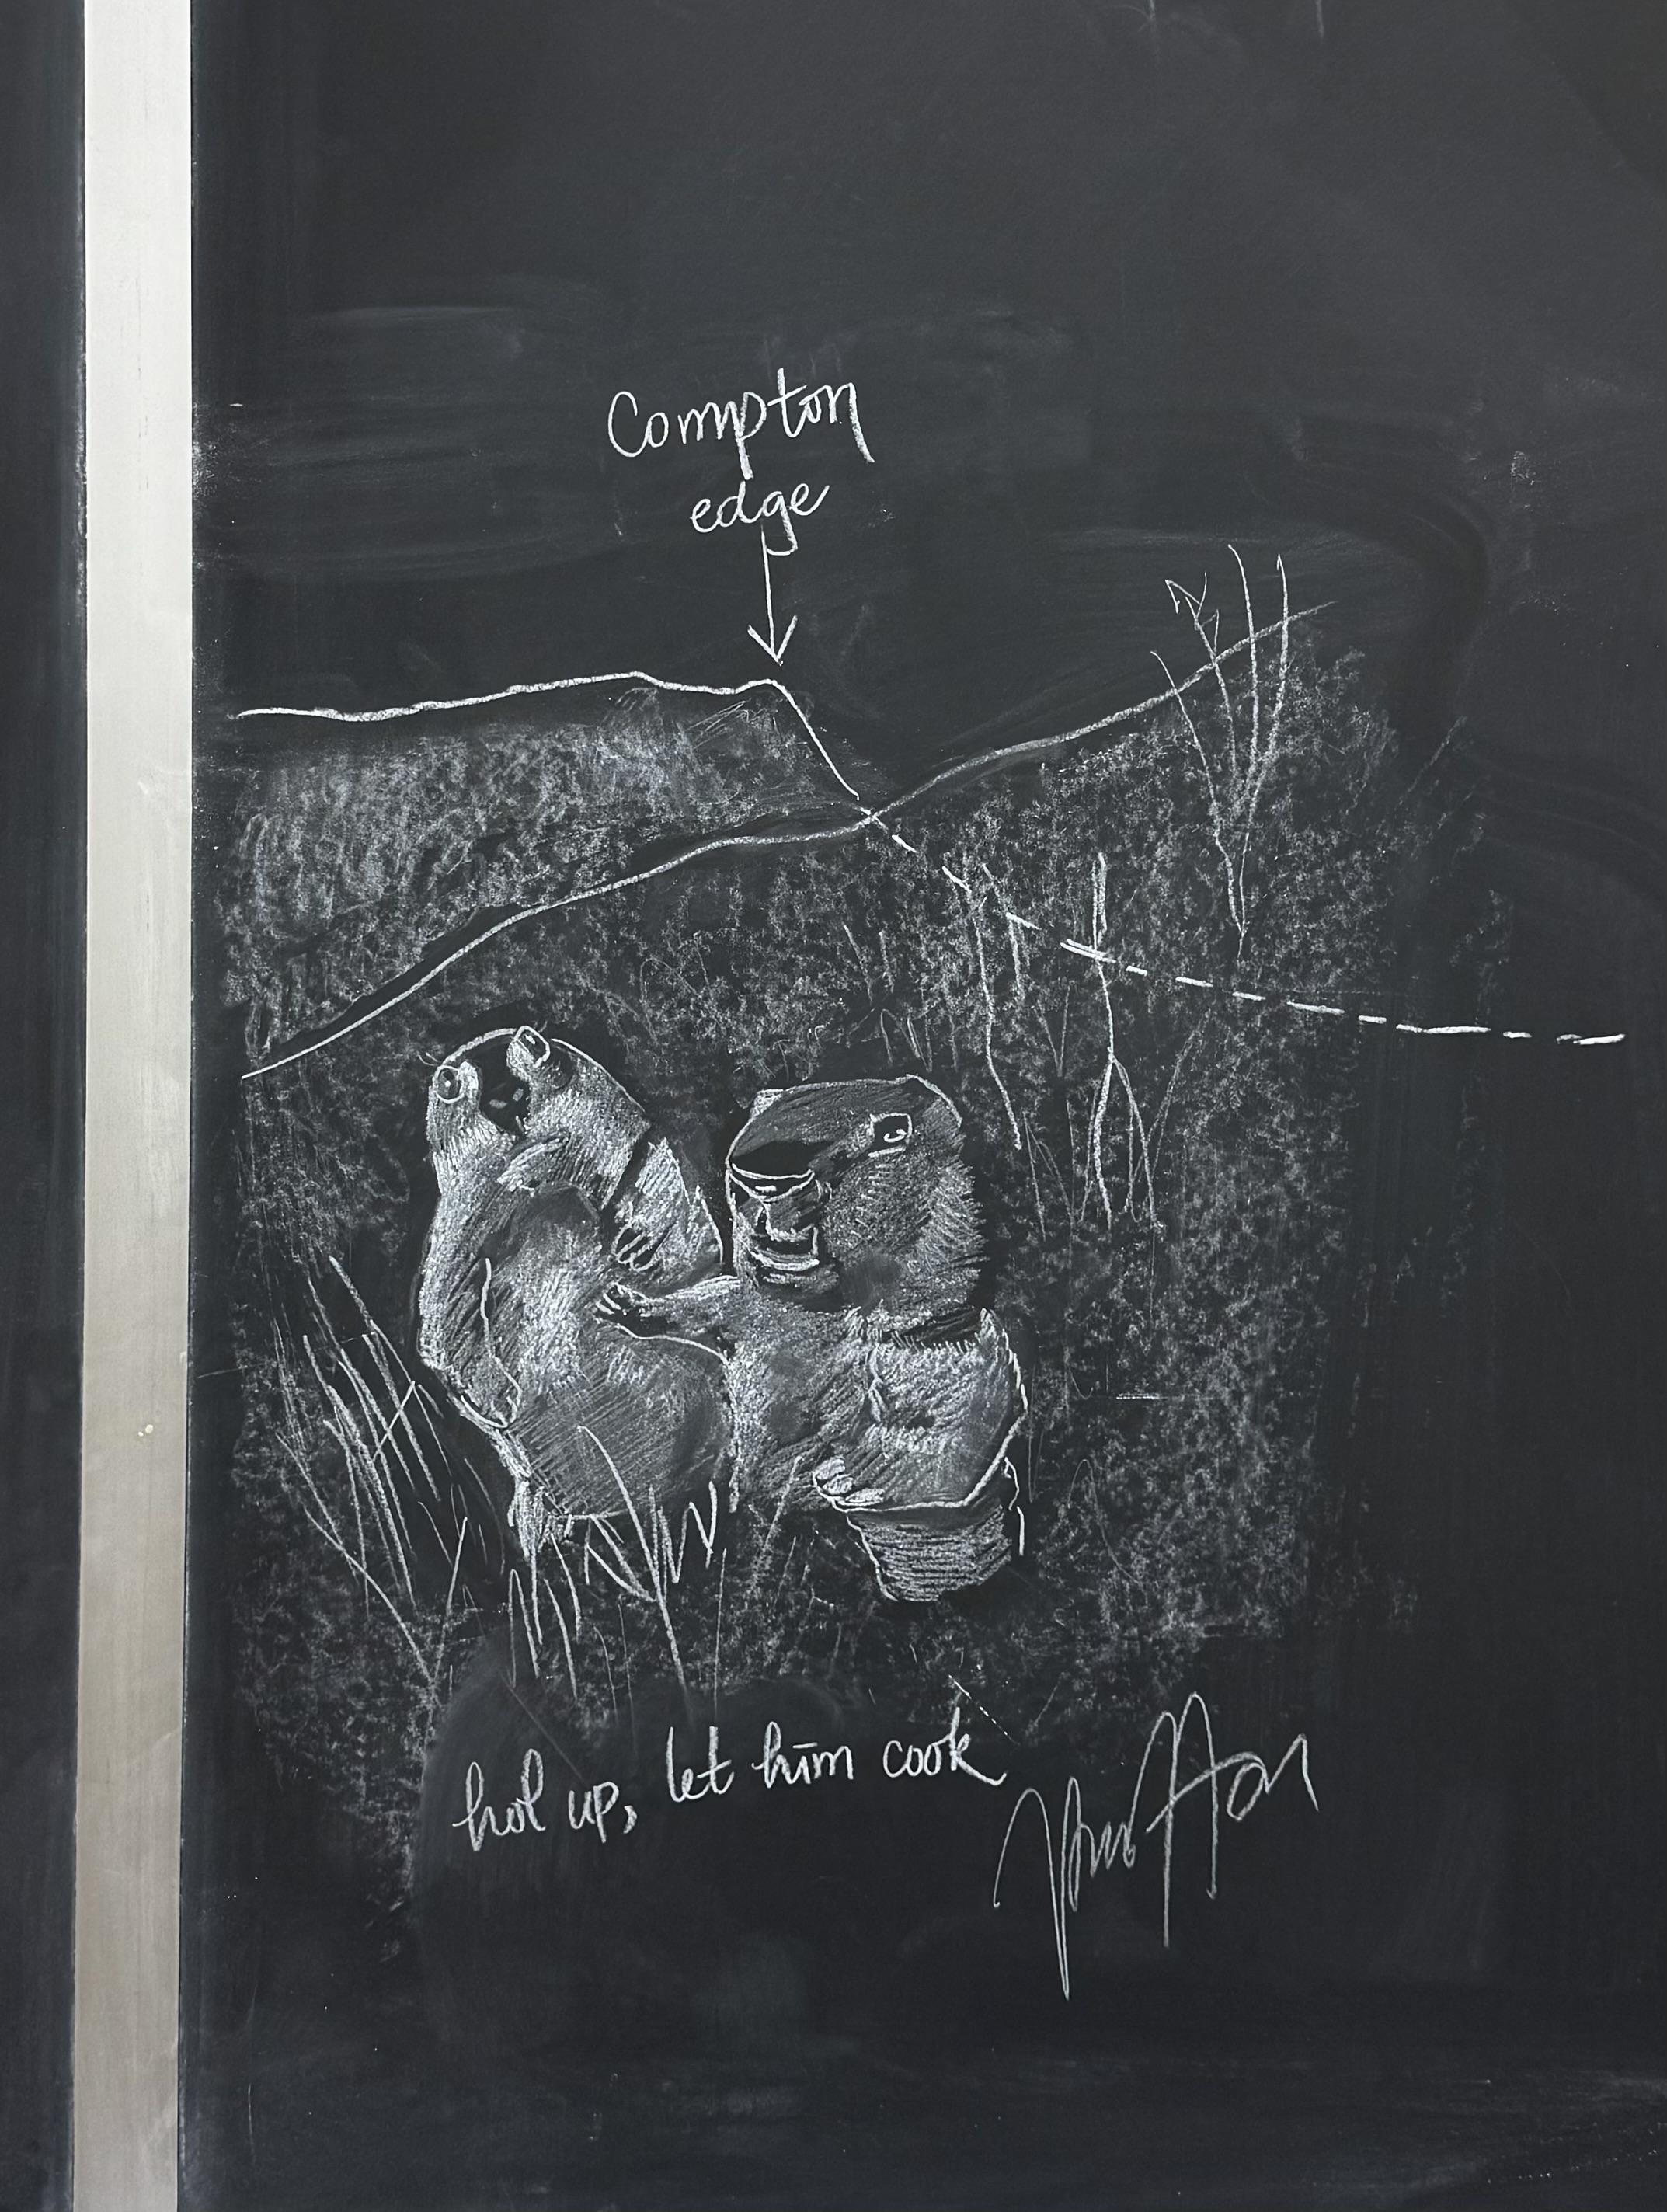 Compton
edge
hol up, let him cook